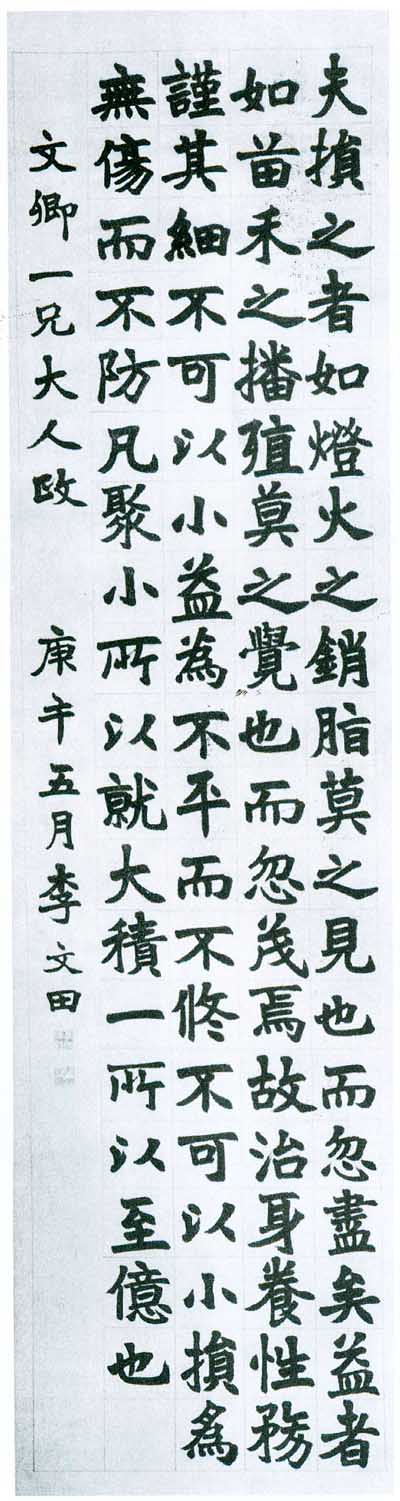 夫損之者如燈火之銷脂莫之見也而忽盡矣益者
如苗禾之播殖莫之覺也而忽茂焉故治身養性務
謹其細不可以小益為不平而不脩不可以小損為
無傷而不防凡聚小所以就大積一所以至億也
文卿一兄大人政 庚午五月李文田